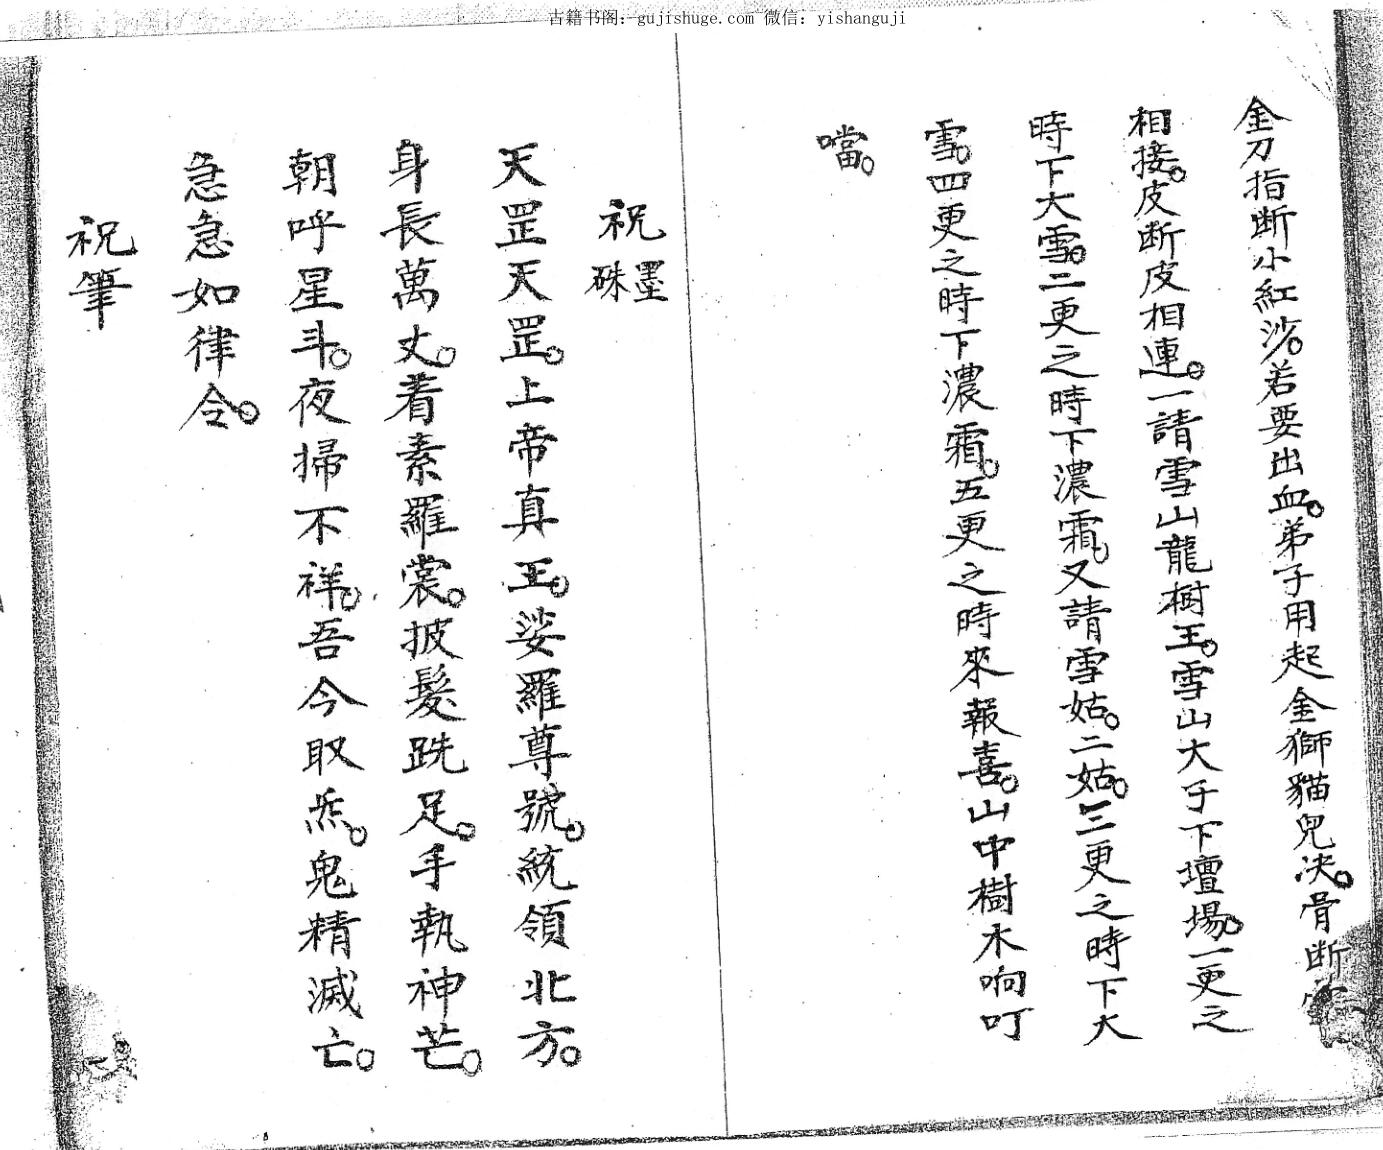 古籍书阁：gujishuge.com 微信：yishanguji
金刀指断小紅沙。若要出血。弟子用起金獅貓兒决。骨断
相接。皮断皮相連。一請雪山龍樹王。雪山大子下壇場。一更之
時下大雪。二更之時下濃霜。又請雪姑。二姑。三更之時下大
雪。四更之時下濃霜。五更之時來報喜。山中樹木响叮
噹。
祝墨硃
天罡天罡。上帝真王。娑羅尊號。統領北方。
身長萬丈。着素羅裳。披髮跣足。手執神芒。
朝呼星斗。夜掃不祥。吾今取炁。鬼精滅亡。
急急如律令。
祝筆